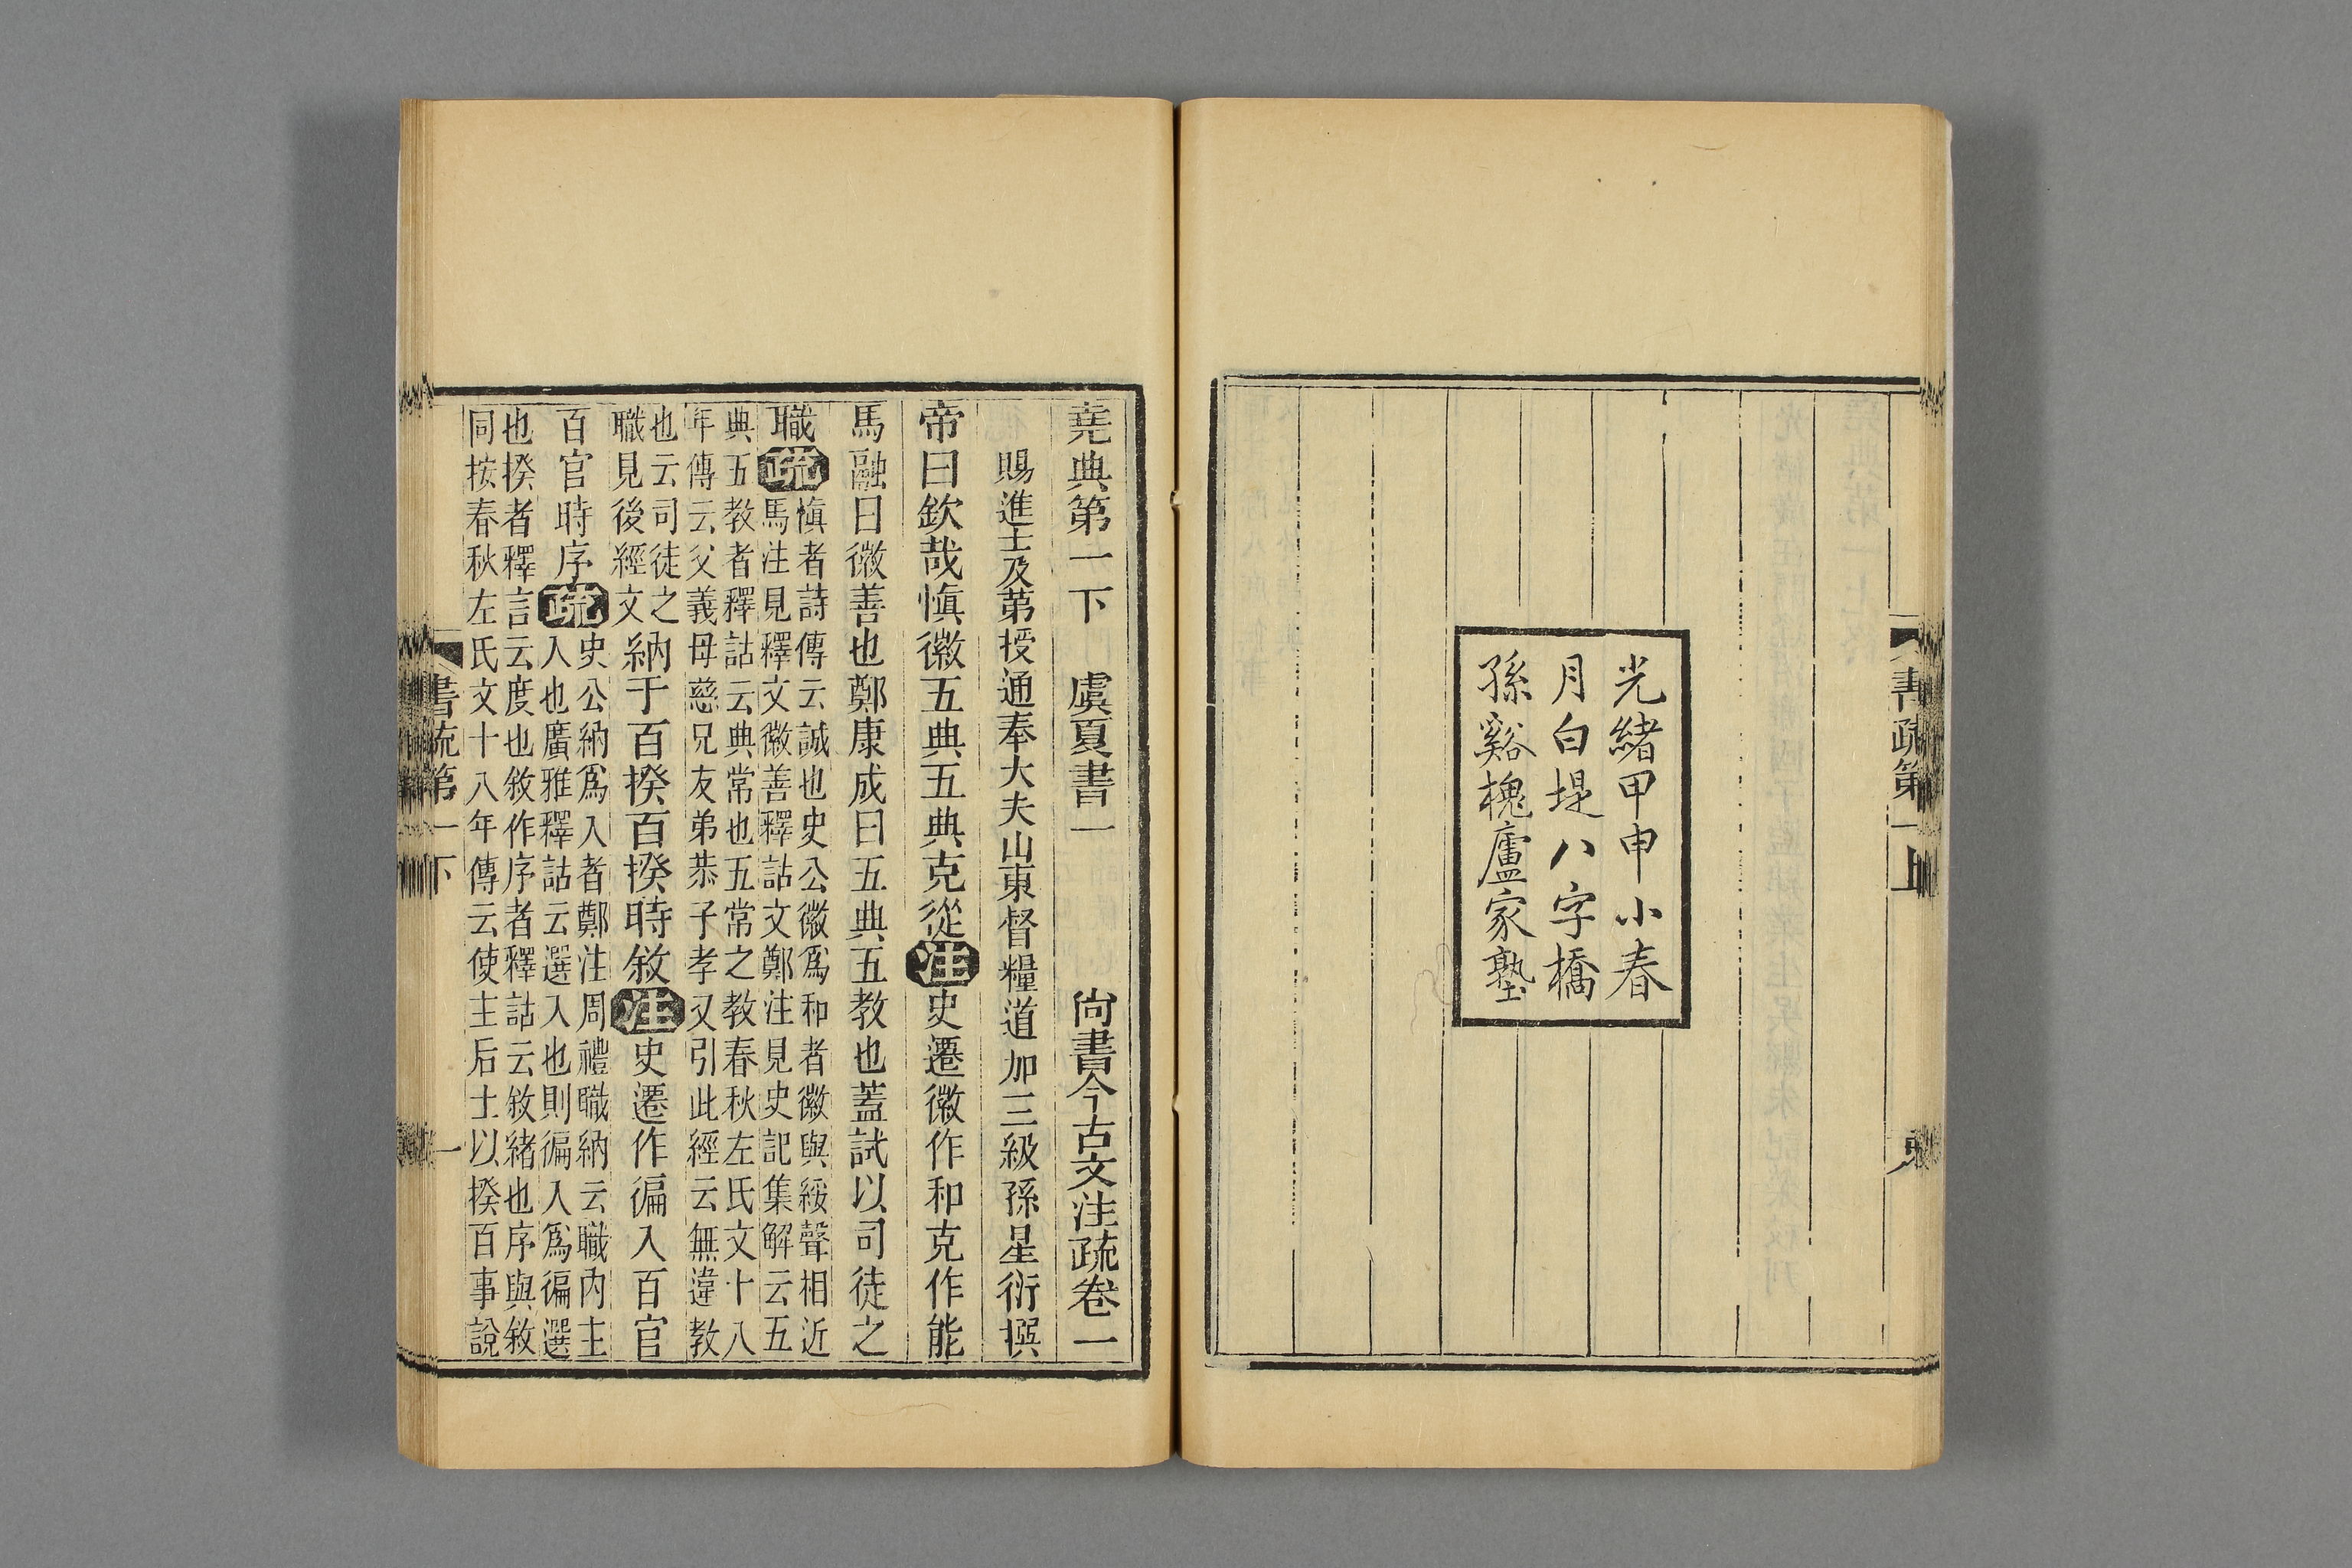 書疏第一上
光緒甲申小春
月白堤八字橋
孫谿槐廬家塾
堯典第一下 虞夏書一 尙書今古文注疏卷一
賜進士及第授通奉大夫山東督糧道加三級孫星衍撰
帝曰欽哉愼徽五典五典克從注史遷徽作和克作能
馬融曰徽善也鄭康成曰五典五教也蓋試以司徒之
職疏
愼者詩傳云誠也史公徽爲和者徽與綏聲相近
馬注見釋文徽善釋詁文鄭注見史記集解云五
典五教者釋詁云典常也五常之教春秋左氏文十八
年傳云父義母慈兄友弟恭子孝又引此經云無違教
也云司徒之
職見後經文
納于百揆百揆時敘注史遷作徧入百官
百官時序疏
史公納爲入者鄭注周禮職納云職內主
入也廣雅釋詁云選入也則徧入爲徧選
也揆者釋言云度也敘作序者釋詁云敘緒也序與敘
同按春秋左氏文十八年傳云使主后土以揆百事說
書疏第一下 一